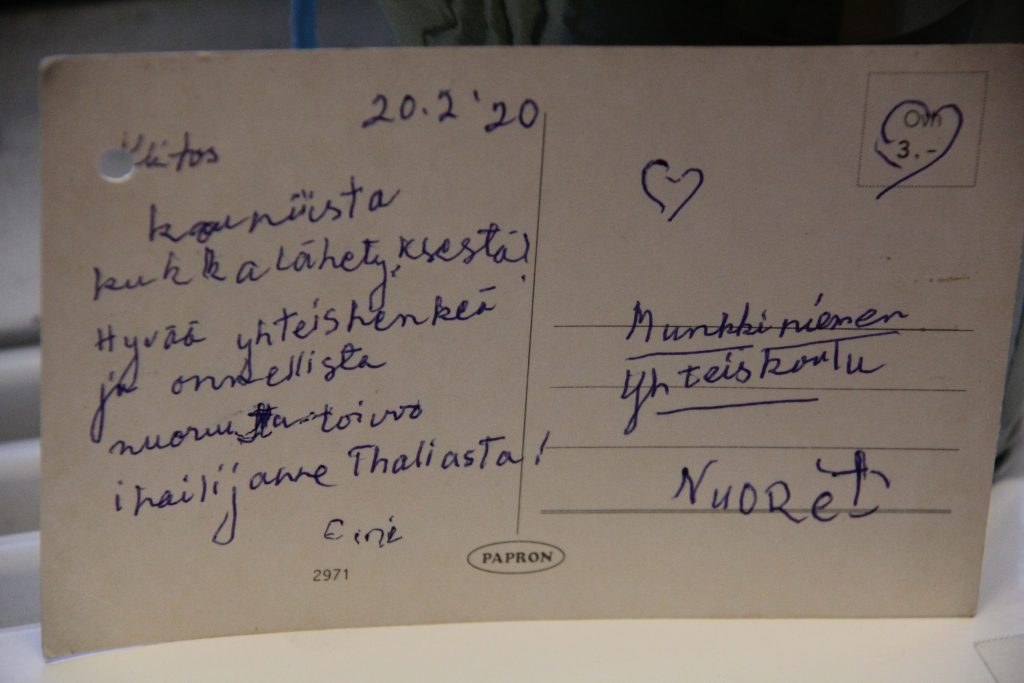 20.2 '20
Kiitos
kauniista
kukkalähetyksestä!
Hyvää yhteishenkeä
ja onnellista
nuoruutta toivoo
ihailijanne Thaliasta!
2971
PAPRON
Ovh
3.-
Munkkiniemen
Yhteiskoulu
NUORET